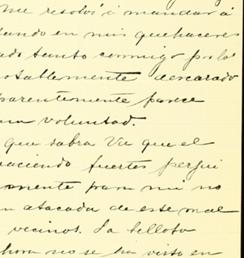 me resolví i mandar á
tando en mis quehaceres
ado tanto conmigo por lo
notablemente descarado
parentemente parece
una voluntad.
que sabra Ve que el
haciendo fuertes perjui
mente para mi no
n atacada de este mal
vecinos. La bellota
hora no se ha visto en